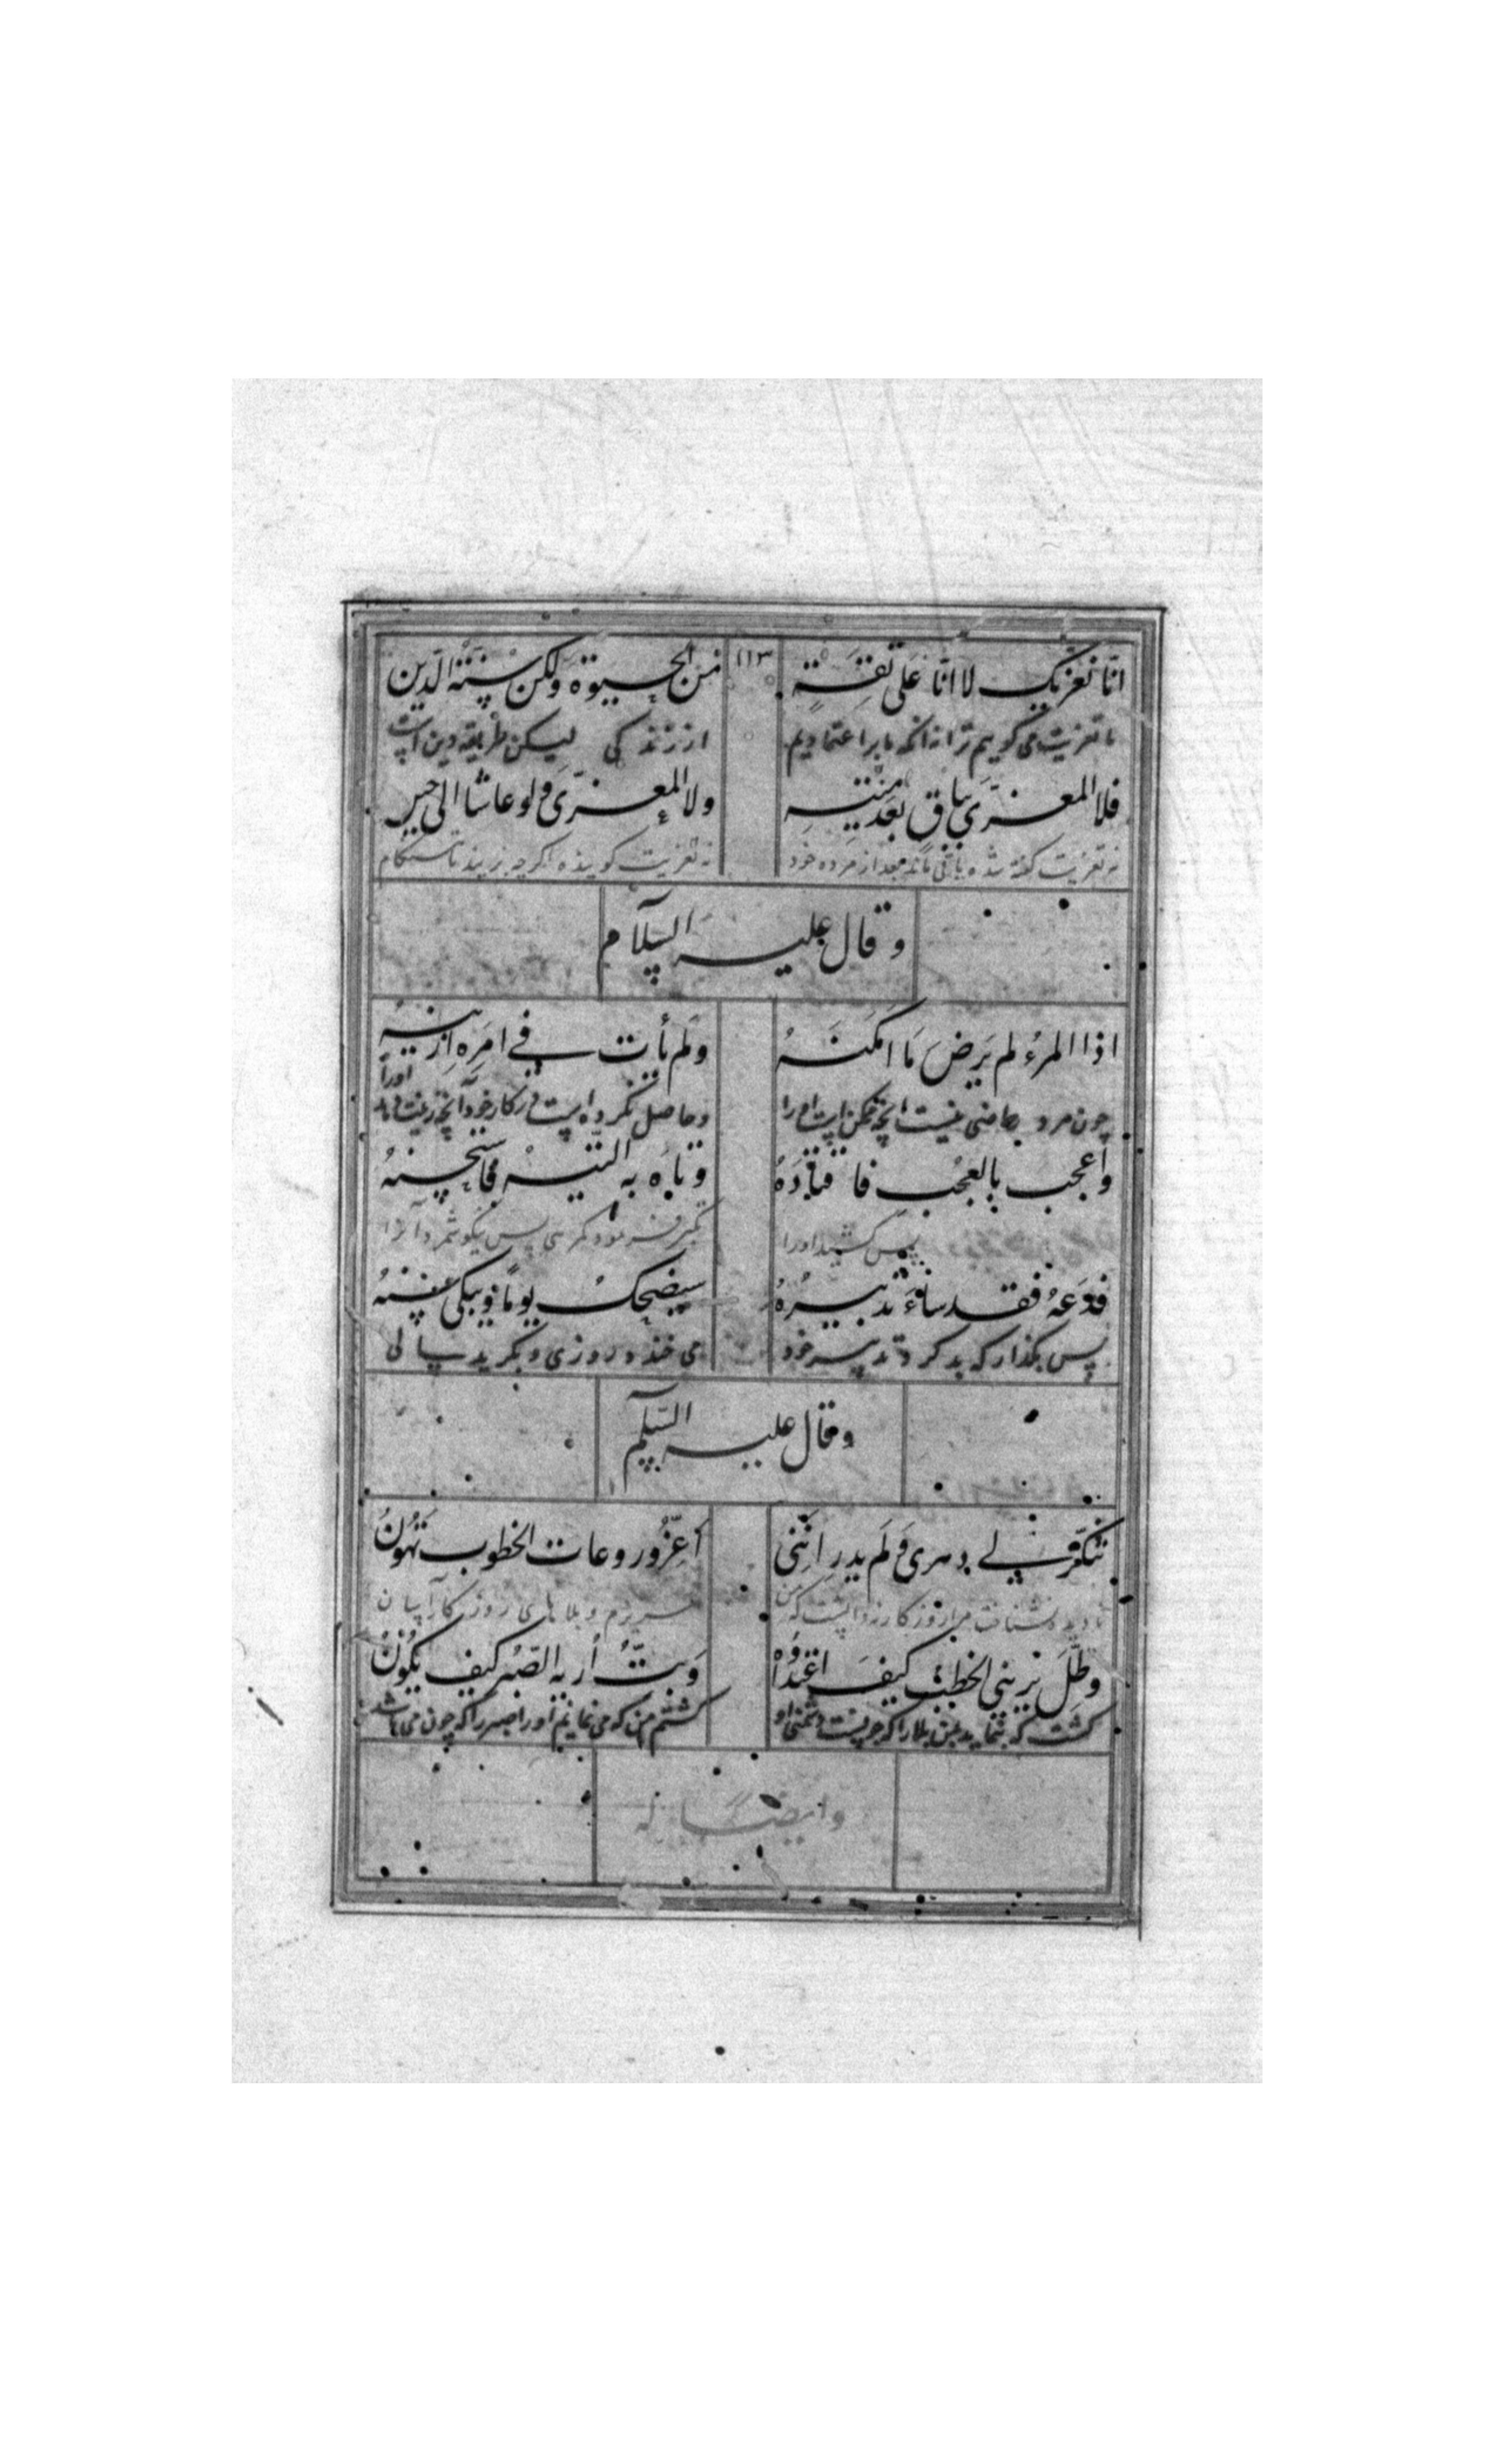 ۱۱۳
انّا نعزیک لا انّا علی ثقةٍ من الحیوة ولکن سنّة الدّین
ما تعزیت می کوییم ترا نه آنکه ما بر اعتمادیم از زندکی لیکن طریقه دین است
فلا المعزّی بباق بعد میّته ولا المعزّی ولو عاشا الی حین
نه تعزیت کفته شده باقی ماند بعد از مرده خود نه تعزیت کوینده اکرچه بزیند تا هنکام
وقال علیه السلام
اذا المرءُ لم یَرضَ مَا اَمکنَهُ ولم یأت فی امرِهِ ازینهُ
چون مرد راضی نیست آنچه ممکن است او را وحاصل نکرده است در کار خود آنچه زینت اورا
واعجب بالعُجب فاقتادَهُ وتاه به التّیه فاستحسنهُ
پس کشید اورا تکبر پس نیکو شمرد آنرا
فدَعهُ فقد ساءَ تدبیرُهُ سیضحکُ یوماً ویبکی سنهُ
پس بکذار که بد کرد تدبیر خود می خندد روزی و بکرید سالی
وقال علیه السلم
تنکّر لی دهری ولَم یدرِ انّنی اَعِزُّ وروعات الخطوب تَهُونُ
نشناخت مرا روزکار و ندانست که من عزیزم و بلاهای روزکار آسان
وظَلَّ یرینی الخطب کیفَ اعتداؤُهُ وَبِتُّ اُریه الصّبر کیف یکُونُ
کشت که بنماید بمن بلا را که چونست دشمنی او کشتم من که می نمایم او را صبر را که چون می باشد
وایضاً له